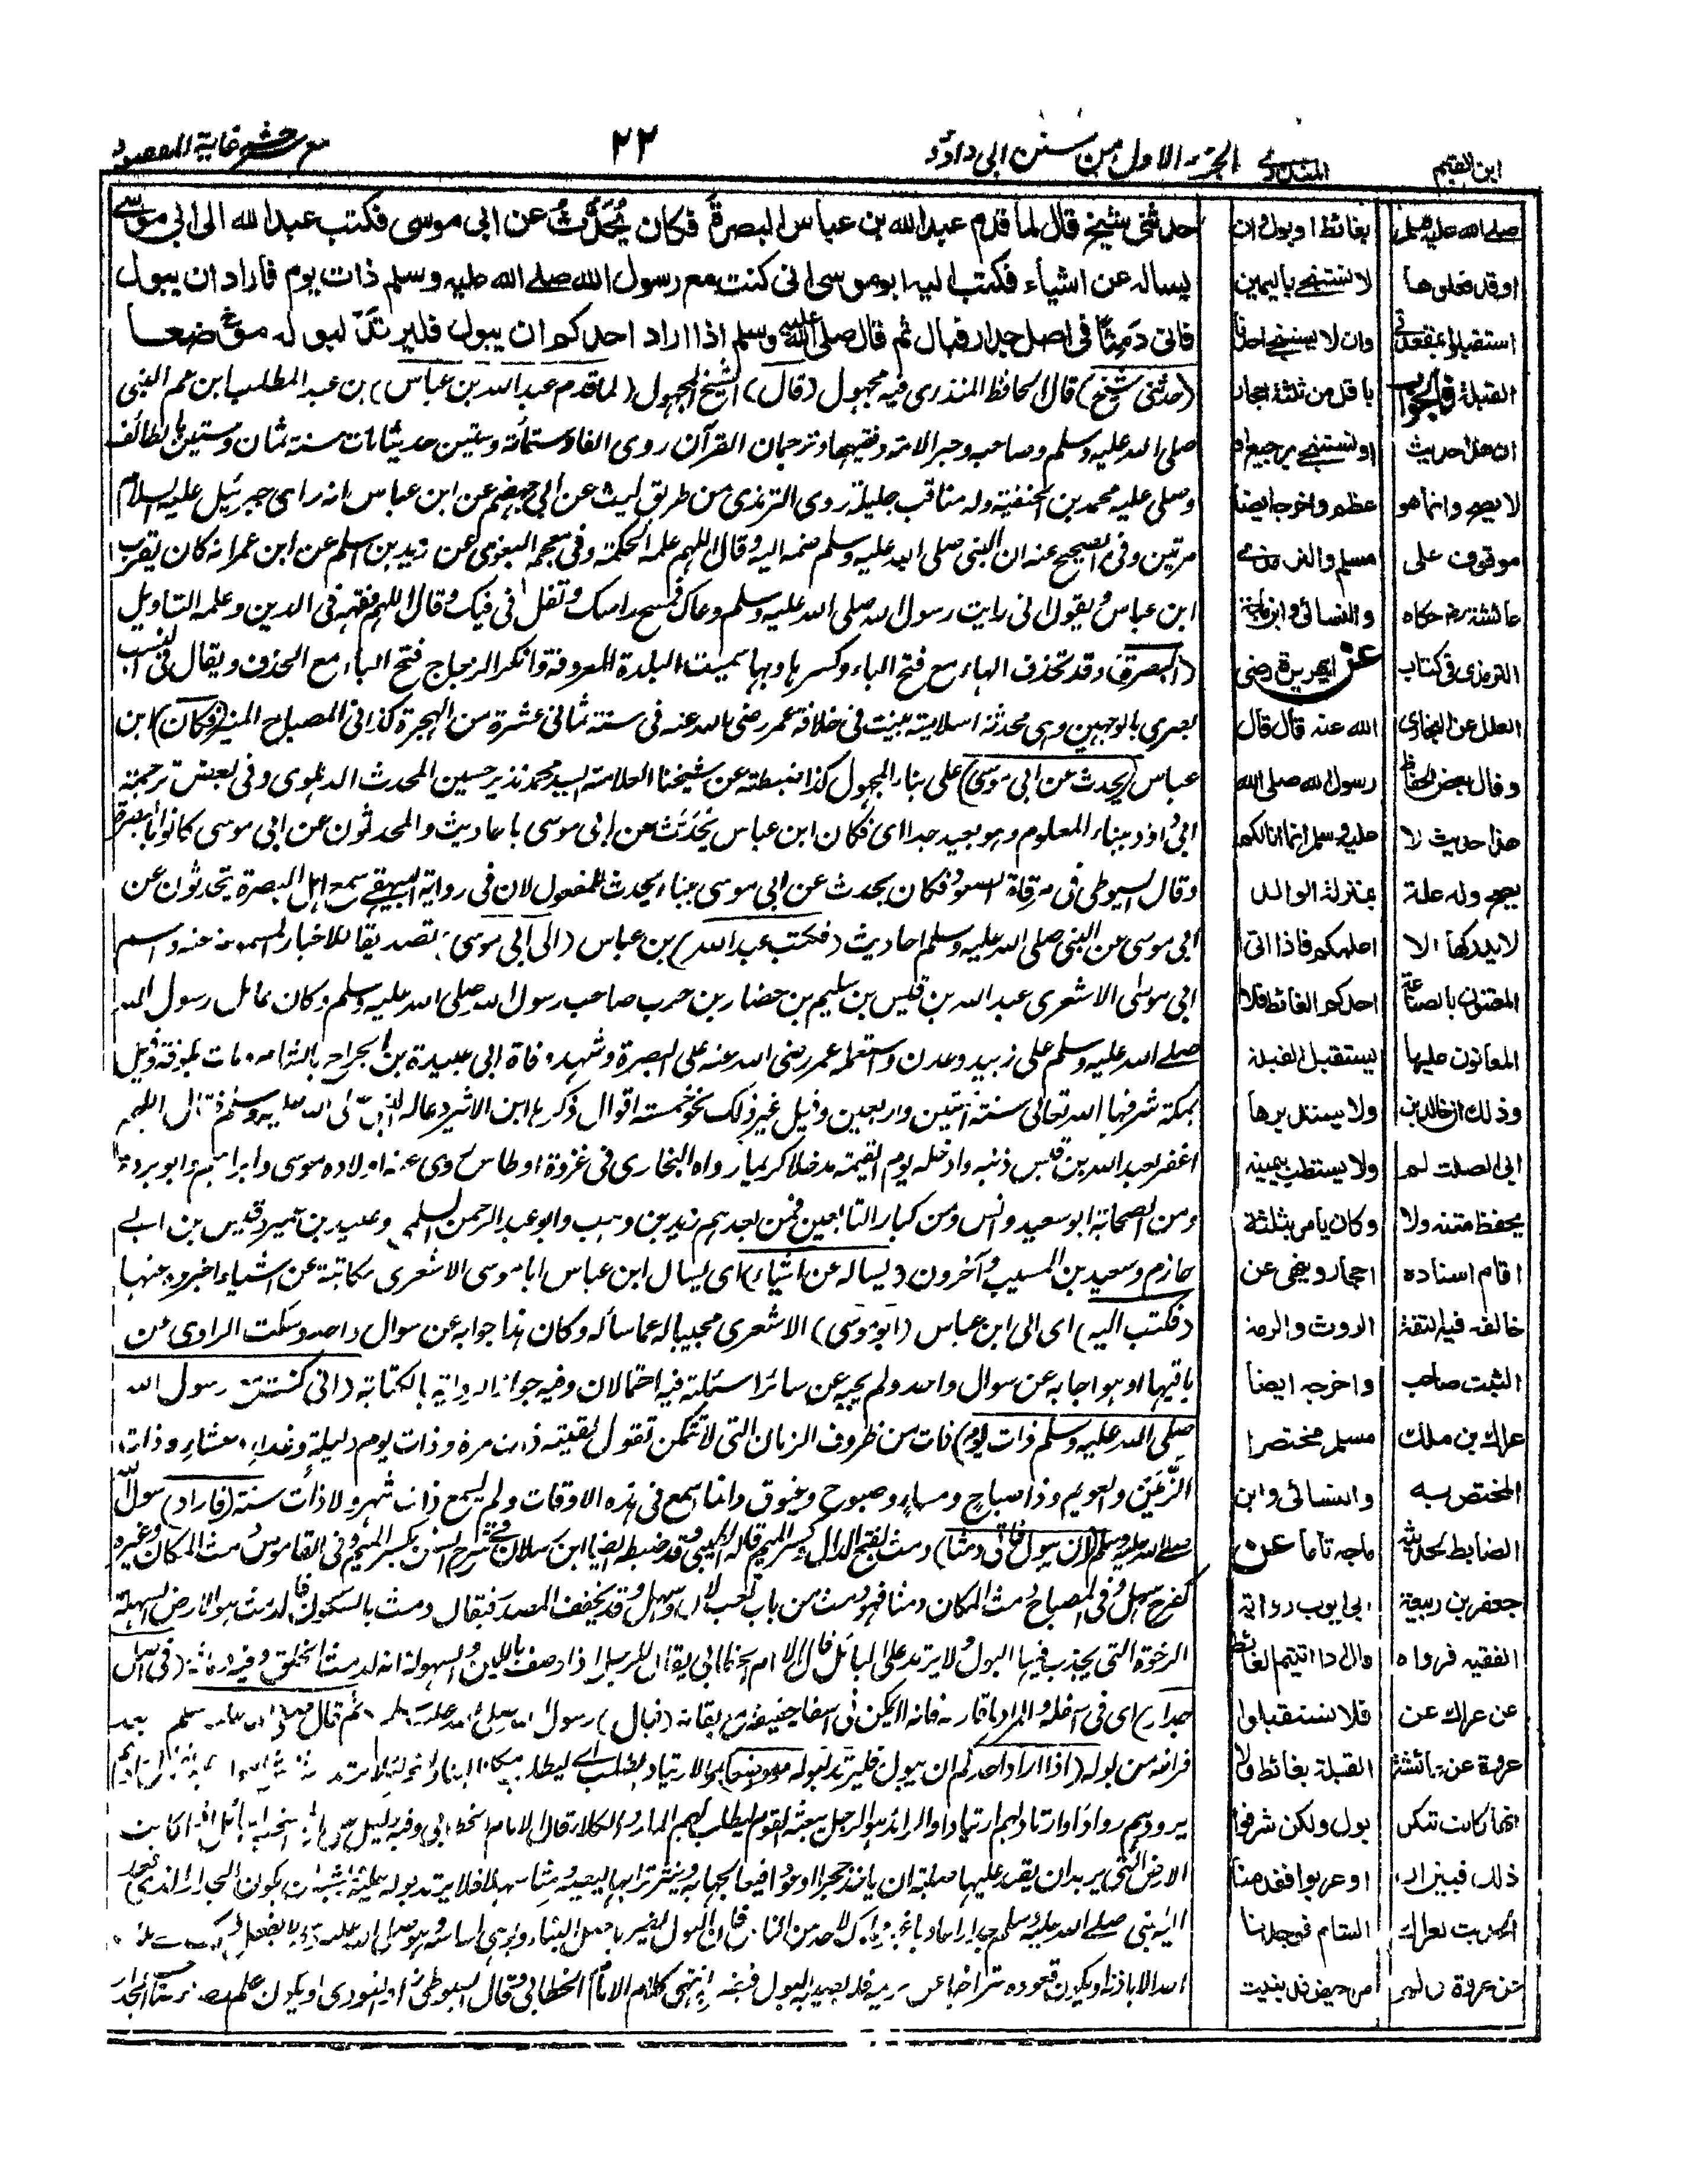 ابن القيم
المنذري
الجزء الاول من سنن ابى داؤد
٢٢
مع شرحه غاية المقصود
حدثنى شيخ قال لما قدم عبدالله بن عباس البصرة فكان يُحَدَّثُ عن ابى موسى فكتب عبدالله الى ابى موسى
يساله عن اشياء فكتب اليه ابو موسى انى كنت مع رسول الله صلى الله عليه وسلم ذات يوم فاراد ان يبول
فاتى دَمِثًا فى اصل جدار فبال ثم قال صلى الله عليه وسلم اذا اراد احدكم ان يبول فليرتد لبوله موضعا
(حدثنى شيخ) قال الحافظ المنذرى فيه مجهول (قال) الشيخ المجهول (لما قدم عبدالله بن عباس) بن عبد المطلب ابن عم النبى
صلى الله عليه وسلم وصاحبه وحبر الامة وفقيهها وترجمان القرآن روى الفا وستمائة وستين حديثا مات سنة ثمان وستين بالطائف
وصلى عليه محمد بن الحنفية وله مناقب جليلة روى الترمذى من طريق ليث عن ابى جهضم عن ابن عباس انه راى جبرئيل عليه السلام
مرتين وفى الصحيح عنه ان النبى صلى الله عليه وسلم ضمه اليه وقال اللهم علمه الحكمة وفى معجم البغوى عن زيد بن اسلم عن ابن عمر انه كان يقرب
ابن عباس ويقول انى رايت رسول الله صلى الله عليه وسلم دعاك فمسح راسك وتفل فى فيك وقال اللهم فقهه فى الدين وعلمه التاويل
(البصرة) وقد تحذف الهاء مع فتح الباء وكسرها وبها سميت البلدة المعروفة وانكر الزجاج فتح الباء مع الحذف ويقال فى النسب
بصرى بالوجهين وهى محدثة اسلامية بنيت فى خلافة عمر رضى الله عنه فى سنة ثمانى عشرة من الهجرة كذا فى المصباح المنير (فكان) ابن
عباس (يحدث عن ابى موسى) على بناء المجهول كذا ضبطته عن شيخنا العلامة السيد محمد نذير حسين المحدث الدهلوى وفى بعض ترجمة
ابى داؤد ببناء المعلوم وهو بعيد جدا اى فكان ابن عباس يُحَدَّث عن ابى موسى باحاديث والمحدثون عن ابى موسى كانوا بالبصرة
وقال السيوطى فى مرقاة الصعود فكان يحدث عن ابى موسى ببناء يحدث للمفعول لان فى رواية البيهقى سمع اهل البصرة يتحدثون عن
ابى موسى عن النبى صلى الله عليه وسلم احاديث (فكتب عبدالله) بن عباس (الى ابى موسى) تصديقا للاخبار المسموعة عنه واسم
ابى موسى الاشعرى عبدالله بن قيس بن سليم بن حضار بن حرب صاحب رسول الله صلى الله عليه وسلم وكان عامل رسول الله
صلى الله عليه وسلم على زبيد وعدن واستعمله عمر رضى الله عنه على البصرة وشهد وفاة ابى عبيدة بن الجراح بالشام ومات بكوفة وقيل
بمكة شرفها الله تعالى سنة اثنتين واربعين وقيل غير ذلك نحو خمسة اقوال ذكرها ابن الاثير دعا له النبى صلى الله عليه وسلم فقال اللهم
اغفر لعبدالله بن قيس ذنبه وادخله يوم القيمة مدخلا كريما رواه البخارى فى غزوة اوطاس روى عنه اولاده موسى وابراهيم وابو بردة
ومن الصحابة ابو سعيد وانس ومن كبار التابعين فمن بعدهم زيد بن وهب وابو عبد الرحمن السلمى وعبيد بن عمير وقيس بن ابى
حازم وسعيد بن المسيب وآخرون (يساله عن اشياء) اى يسال ابن عباس ابا موسى الاشعرى مكاتبة عن اشياء اخبروه عنها
(فكتب اليه) اى الى ابن عباس (ابو موسى) الاشعرى مجيبا له عما سأله وكان هذا جوابه عن سوال واحد وسكت الراوى عن
باقيها او هو اجابه عن سوال واحد ولم يجبه عن سائر اسئلته فيه احتمالان وفيه جواز الرواية بالكتابة (انى كنت مع رسول الله
صلى الله عليه وسلم ذات يوم) ذات من ظروف الزمان التى لا تتمكن تقول لقيته ذات مرة وذات يوم وليلة وغداء وعشاء وذات
الزُّمَيْن والعويم وذا صباح ومساء وصبوح وغبوق وانما سمع فى هذه الاوقات ولم يسمع ذات شهر ولا ذات سنة (فاراد) رسول الله
صلى الله عليه وسلم (ان يبول فاتى دمثا) دمث بفتح الدال وكسر الميم قاله الطيبى وقد ضبطه ايضا ابن رسلان فى شرح السنن بكسر الميم وفى القاموس دمث المكان وغيره
كفرح سهل وفى المصباح دمث المكان دمثا فهو دمث من باب تعب لان وسهل وقد يخفف المصدر فيقال دمث بالسكون فالدمث هو الارض السهلة
الرخوة التى يجذب فيها البول ولا يرتد على البائل قال الامام الخطابى يقال للرجل اذا وصف باللين والسهولة انه لدمث الخلق وفيه دماثة (فى اصل
جدار) اى فى اسفله (فبال) رسول الله صلى الله عليه وسلم (ثم قال) صلى الله عليه وسلم بعد
فراغه من بوله (اذا اراد احدكم ان يبول فليرتد لبوله موضعا)
صلى الله عليه وسلم
او قد فعلوها
استقبلوا بمقعدتى
القبلة فالجواب
ان هذا حديث
لا يصح وانما هو
موقوف على
عائشة رضـ حكاه
الترمذى فى كتاب
العلل عن البخارى
وقال بعض الحفاظ
هذا حديث لا
يصح وله علة
لا يدركها الا
المعتنون بالصناعة
المعانون عليها
وذلك ان خالد بن
ابى الصلت لم
يحفظ متنه ولا
اقام اسناده
خالفه فيه الثقة
الثبت صاحب
عراك بن مالك
المختص به
الضابط لحديثه
جعفر بن ربيعة
الفقيه فرواه
عن عراك عن
عروة عن عائشة
انها كانت تنكر
ذلك فبين ان
الحديث لعراك
عن عروة
بغائط او بول وان
لا نستنجى باليمين
وان لا يستنجى احدنا
باقل من ثلثة احجار
او نستنجى برجيع او
عظم واخرجه ايضا
مسلم والترمذى
والنسائى وابن ماجة
عن ابى هريرة رضى
الله عنه قال قال
رسول الله صلى الله
عليه وسلم انما انا لكم
بمنزلة الوالد
اعلمكم فاذا اتى
احدكم الغائط فلا
يستقبل القبلة
ولا يستدبرها
ولا يستطب بيمينه
وكان يامر بثلثة
احجار وينهى عن
الروث والرمة
واخرجه ايضا
مسلم مختصرا
والنسائى وابن
ماجه تاما عن
ابى ايوب رواية
قال اذا اتيتم الغائط
فلا تستقبلوا
القبلة بغائط ولا
بول ولكن شرقوا
او غربوا فقدمنا
الشام فوجدنا
مراحيض قد بنيت